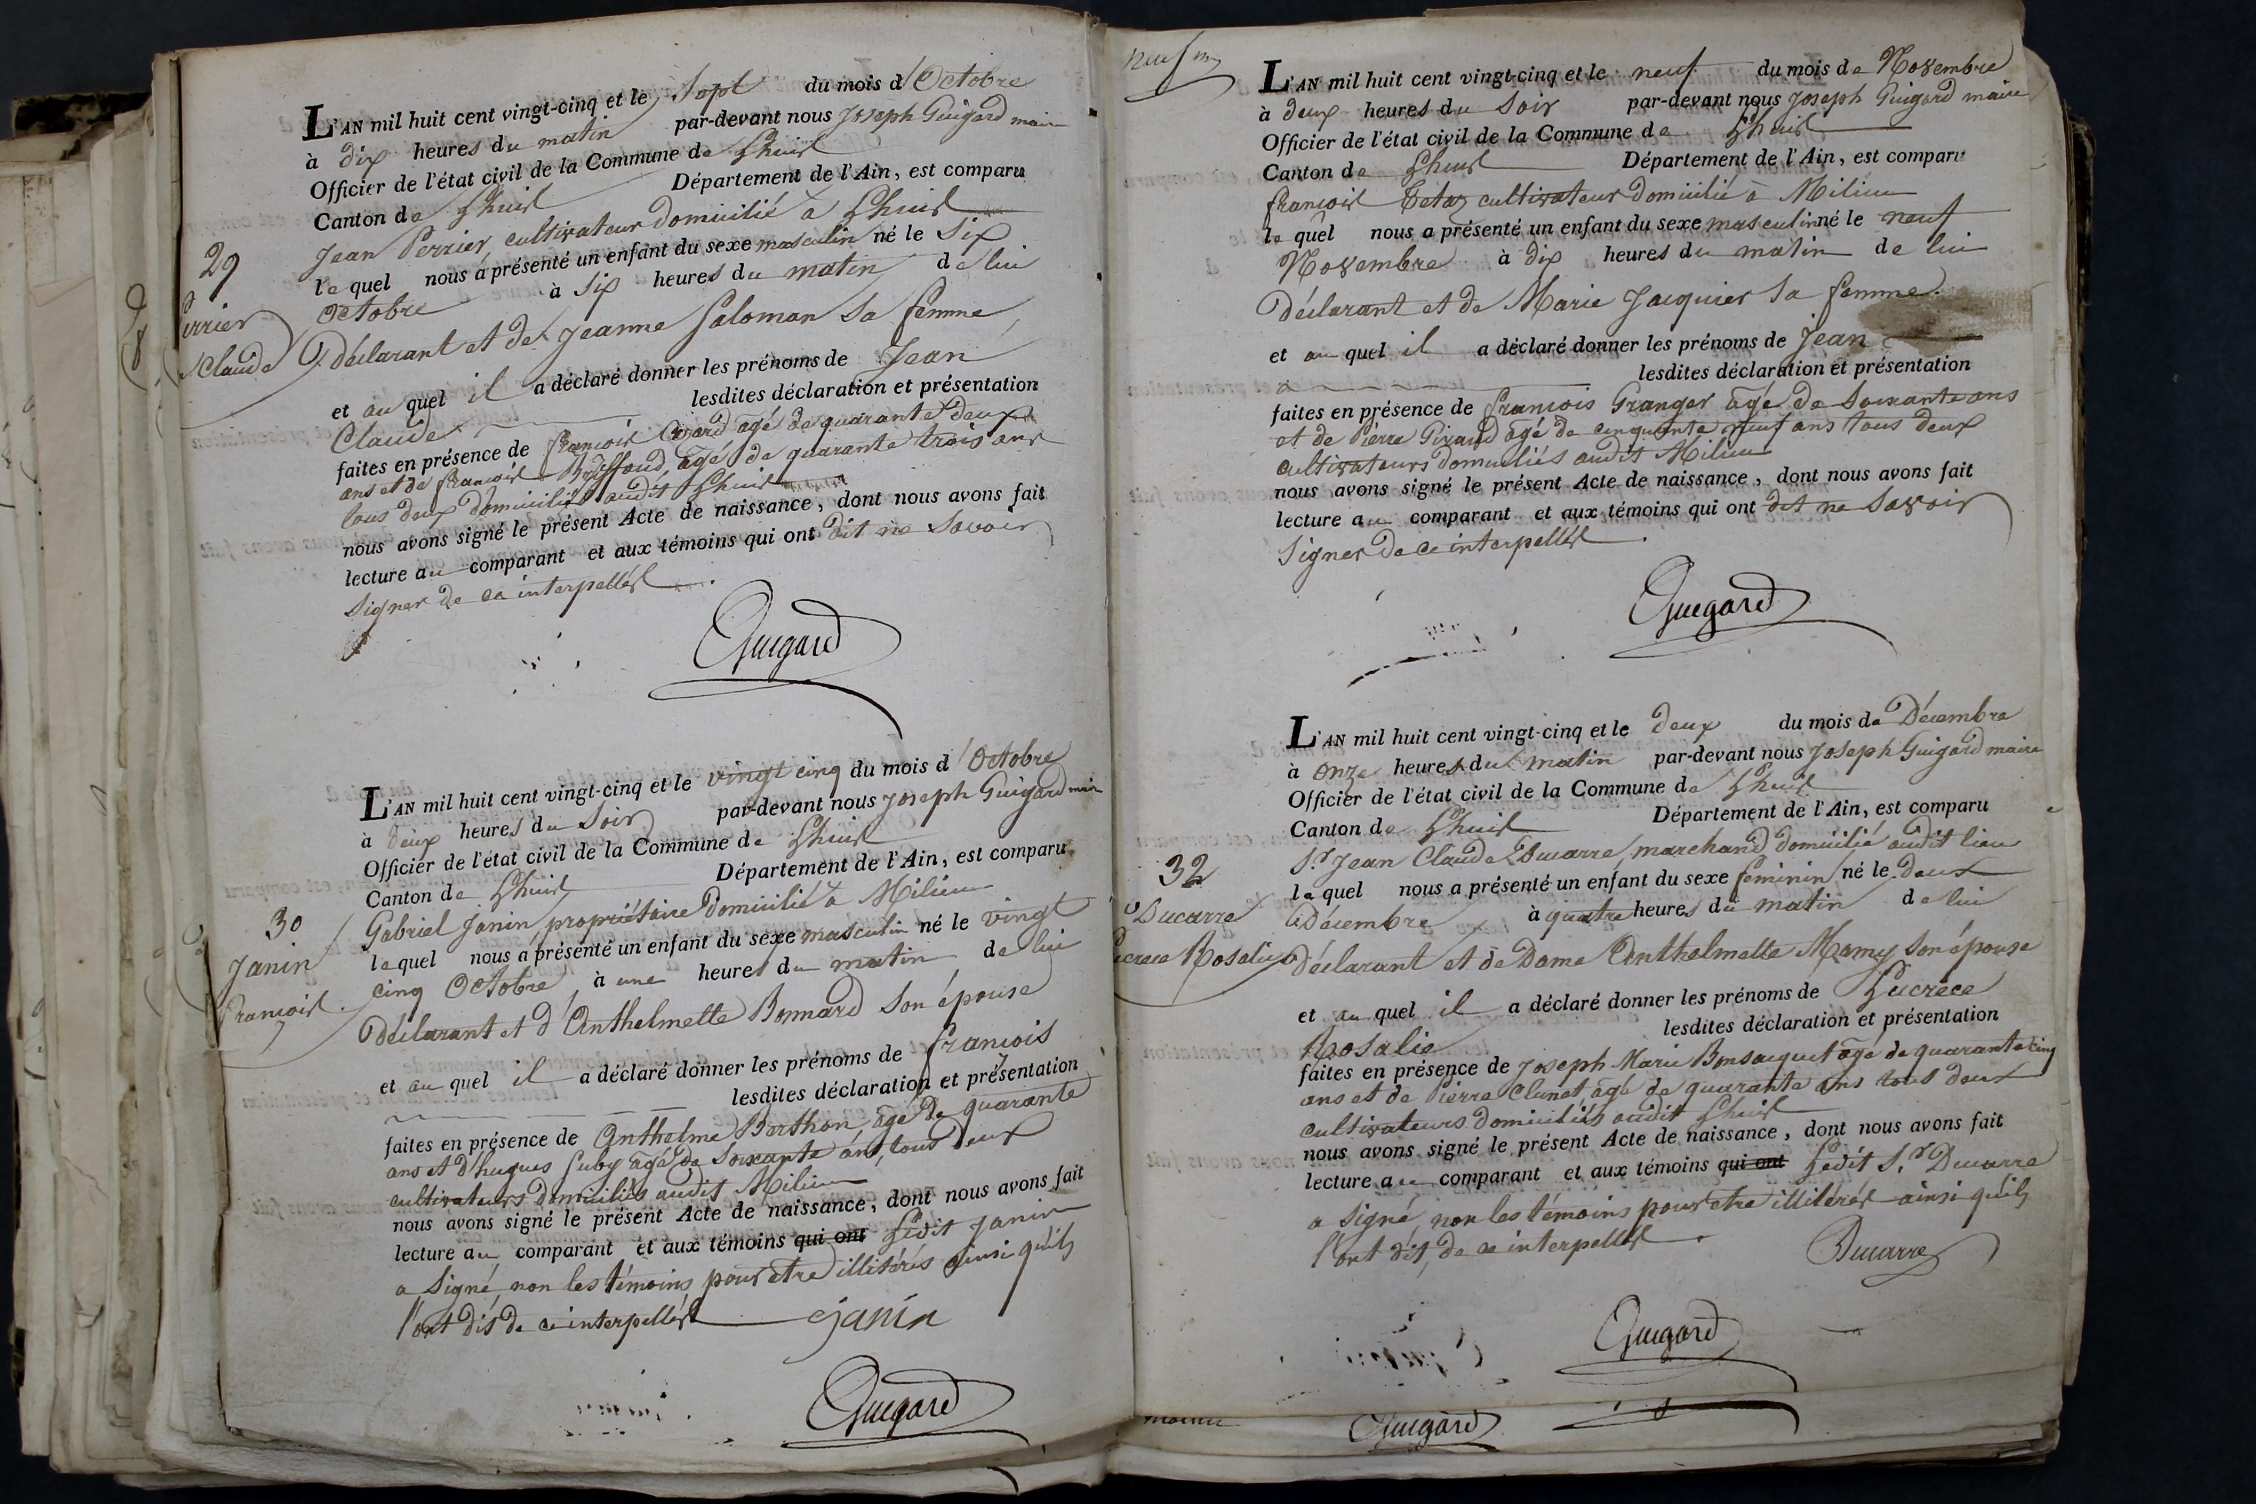 L'AN mil huit cent vingt-cinq et le Sept du mois d'Octobre
à dix heures du matin par-devant nous Joseph Guigard maire
Officier de l'état civil de la Commune de Lhuis
Canton de Lhuis Département de l'Ain, est comparu
Jean Perrier, cultivateur domicilié à Lhuis
le quel nous a présenté un enfant du sexe masculin né le Six
Octobre à Six heures du matin de lui
29
Perrier
Claude
déclarant et de Jeanne Saloman sa femme,
et au quel il a déclaré donner les prénoms de Jean
Claude lesdites déclaration et présentation
faites en présence de françois agé de quarante deux
ans et de françois Buffond, agé de quarante trois ans
tous deux domiciliés audit Lhuis
nous avons signé le présent Acte de naissance, dont nous avons fait
lecture au comparant et aux témoins qui ont dit ne Savoir
Signer de ce interpellés.
Guigard
L'AN mil huit cent vingt-cinq et le vingt cinq du mois d'Octobre
à deux heures du Soir par-devant nous Joseph Guigard maire
Officier de l'état civil de la Commune de Lhuis
Canton de Lhuis Département de l'Ain, est comparu
Gabriel Janin, propriétaire domicilié à Milieu
le quel nous a présenté un enfant du sexe masculin né le vingt
cinq Octobre à une heures du matin de lui
30
Janin
françois
déclarant et d'Anthelmette Bonnard Son épouse
et au quel il a déclaré donner les prénoms de françois
lesdites déclaration et présentation
faites en présence de Anthelme Berthon, agé de quarante
ans et d'hugues Suby agé de Soixante ans, tous deux
cultivateurs domiciliés audit Milieu
nous avons signé le présent Acte de naissance, dont nous avons fait
lecture au comparant et aux témoins qui ont Ledit Janin
a Signé, non les témoins pour etre illitérés ainsi qu'ils
l'ont dit de ce interpellés
Janin
Guigard
neuf
L'AN mil huit cent vingt-cinq et le neuf du mois de Novembre
à deux heures du Soir par-devant nous Joseph Guigard maire
Officier de l'état civil de la Commune de Lhuis
Canton de Lhuis Département de l'Ain, est comparu
françois Tetaz cultivateur domicilié à Milieu
le quel nous a présenté un enfant du sexe masculin né le neuf
Novembre à dix heures du matin de lui
Déclarant et de Marie Jacquier Sa femme.
et au quel il a déclaré donner les prénoms de Jean
lesdites déclaration et présentation
faites en présence de françois Granger agé de Soixante ans
et de Pierre Piraud agé de cinquante neuf ans tous deux
cultivateurs domiciliés audit Milieu
nous avons signé le présent Acte de naissance, dont nous avons fait
lecture au comparant et aux témoins qui ont dit ne Savoir
Signer de ce interpellés.
Guigard
L'AN mil huit cent vingt-cinq et le deux du mois de Décembre
à onze heures du matin par-devant nous Joseph Guigard maire
Officier de l'état civil de la Commune de Lhuis
Canton de Lhuis Département de l'Ain, est comparu
S.r Jean Claude Ducarre, marchand domicilié audit lieu
le quel nous a présenté un enfant du sexe féminin né le deux
Décembre à quatre heures du matin de lui
32
Ducarre
Lucrece Rosalie
déclarant et de Dame Anthelmette Mamy Son épouse
et au quel il a déclaré donner les prénoms de Lucrèce
Rosalie lesdites déclaration et présentation
faites en présence de Joseph Marie Bonsacquet agé de quarante cinq
ans et de Pierre Clunet, agé de quarante ans tous deux
cultivateurs domiciliés audit Lhuis
nous avons signé le présent Acte de naissance, dont nous avons fait
lecture au comparant et aux témoins qui ont Ledit S.r Ducarre
a Signé, non les témoins pour etre illitérés ainsi qu'ils
l'ont dit, de ce interpellés.
Ducarre
Guigard
Guigard